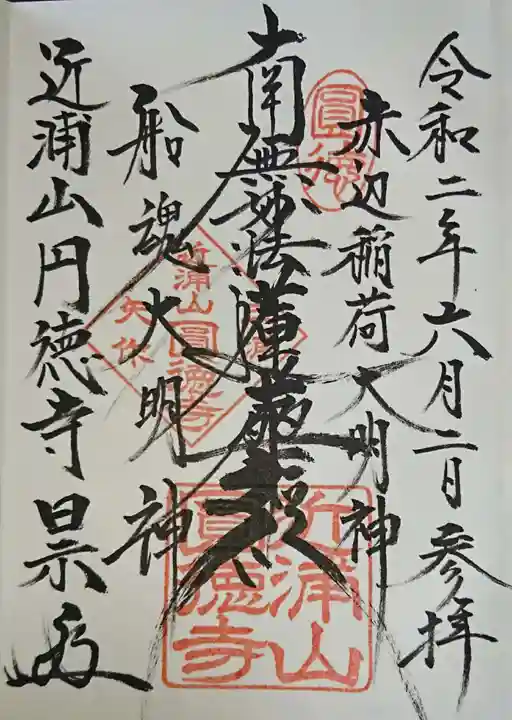 令和二年六月二日参拝
赤辺稲荷大明神
南無妙法蓮華経
船魂大明神
近浦山円徳寺
圓徳
近浦山
圓徳寺
近浦山圓徳寺